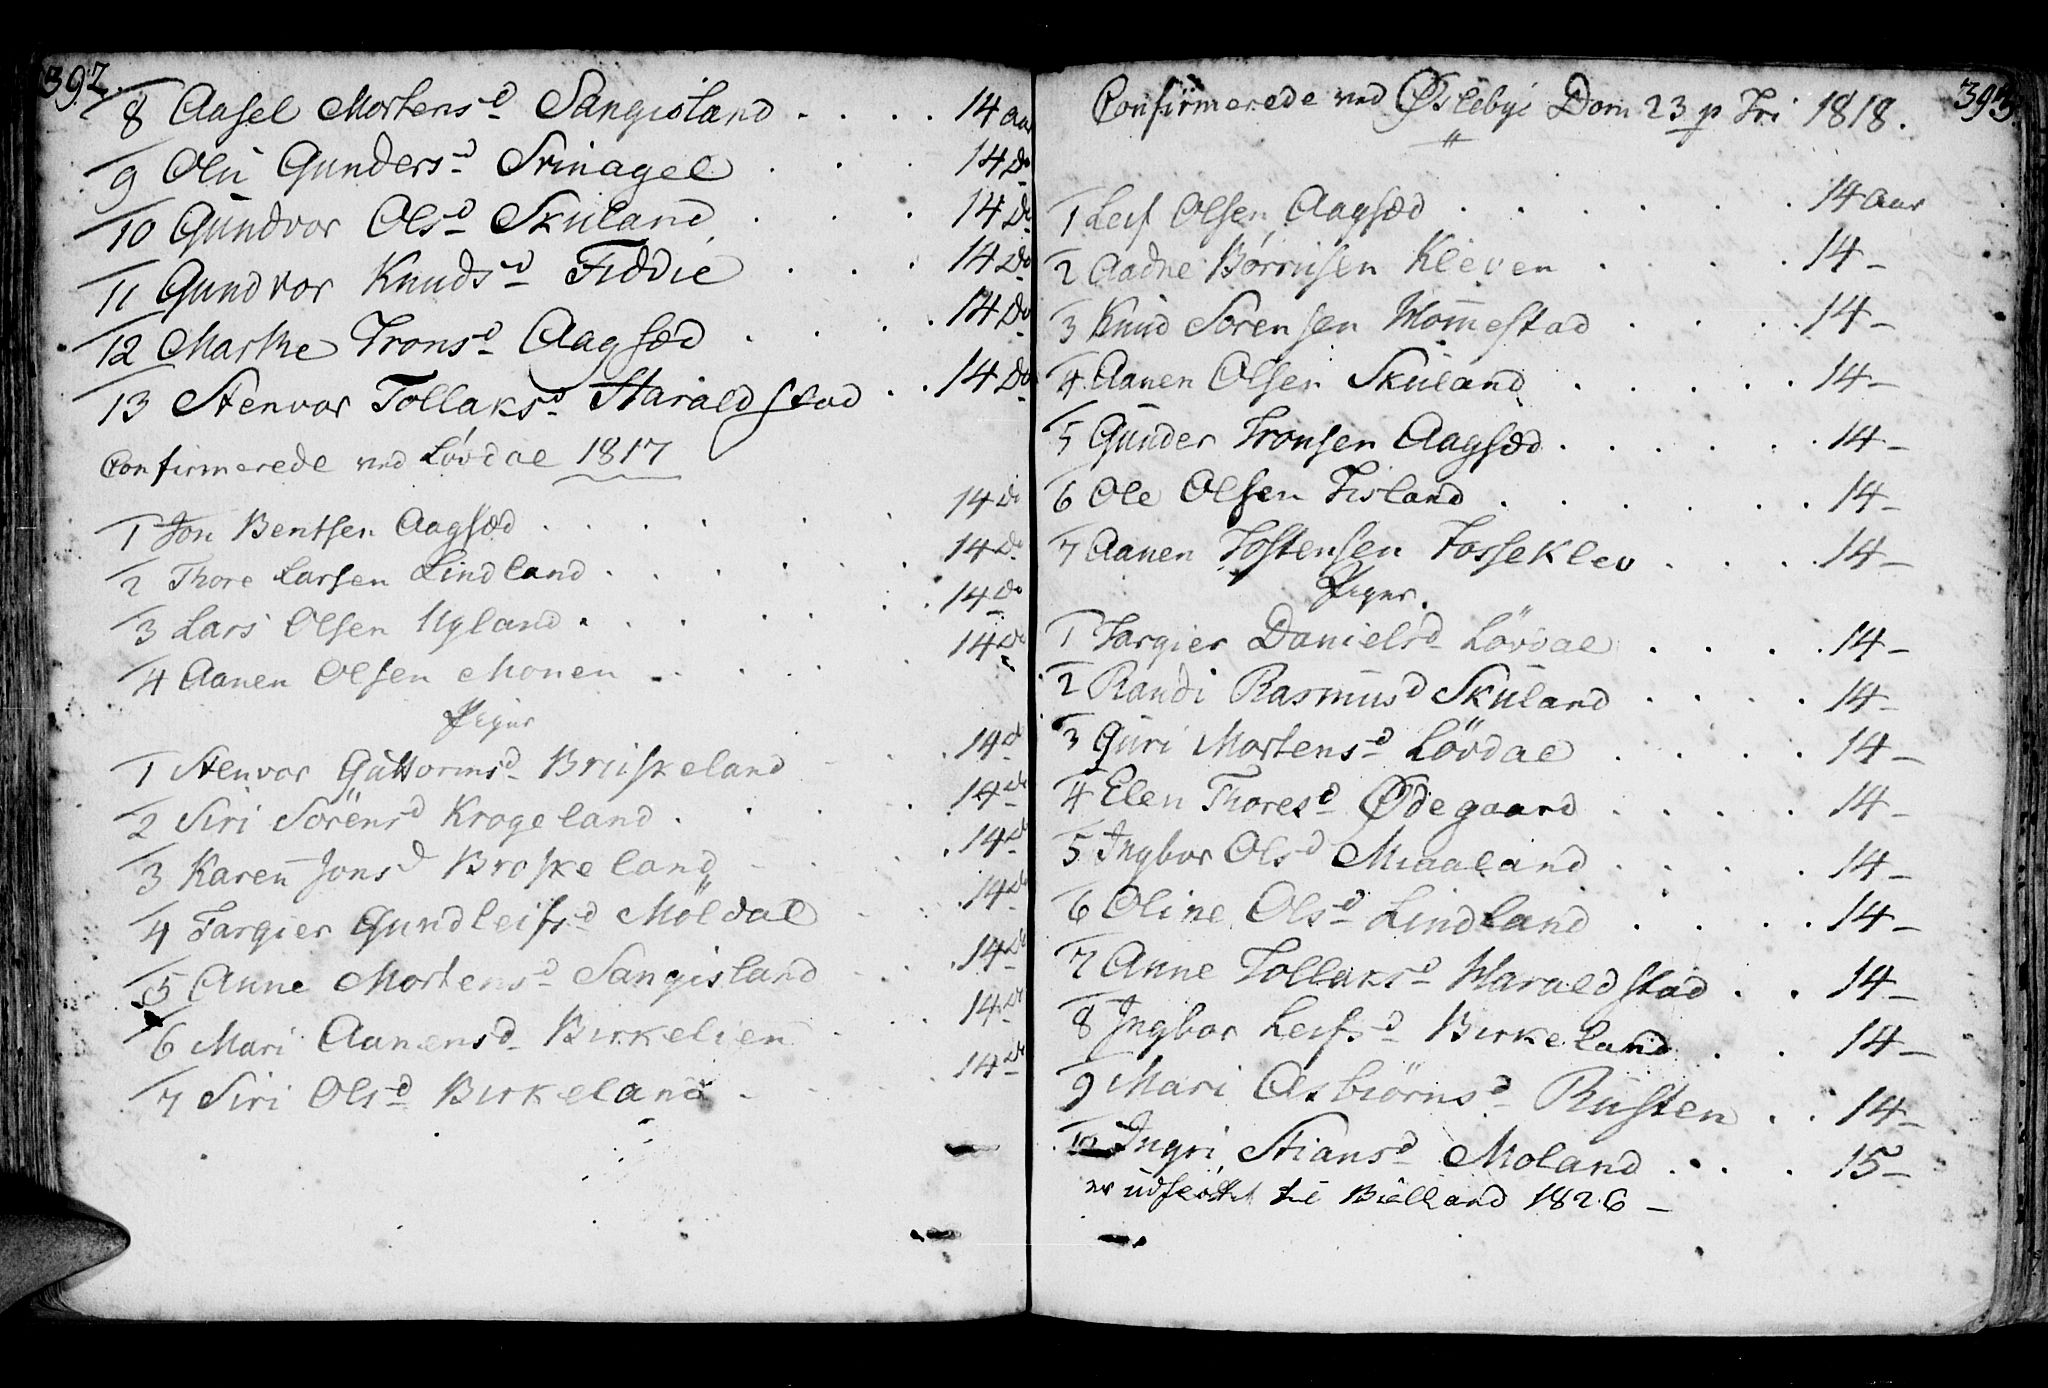 392.
8 Aasel Mortensd Sangisland . . . . 14 aar
9 Oli Gundersd Svinagel . . . 14 Do
10 Gundvor Olsd Skuland . . . 14 Do
11 Gundvor Knudsd Fiddie . . . 14 Do
12 Marthe Tronsd Aagsæd . . . . 14 Do
13 Stenvor Tollaksd Haraldstad . . 14 Do
Confirmerede ved Lövdal 1817
1 Jon Bentsen Aagsæd . . . . . . 14 Do
2 Thore Larsen Lindland . . . . . . 14 Do
3 Lars Olsen Ugland . . . . . . . 14 Do
4 Aanen Olsen Monen . . . . . 14 Do
Piger
1 Stenvor Guttormsd Bruskeland . . 14 Do
2 Siri Sörensd Krogeland . . . . 14 Do
3 Karen Jonsd Broskeland . . . 14 Do
4 Targier Gundleifsd Möldal . . 14 Do
5 Anne Mortensd Sangisland . . . 14 Do
6 Mari Aanensd Birkelien . . . 14 Do
7 Siri Olsd Birkeland . . . 14 Do
393.
Confirmerede ved Øslebye Dom 23 p Tri 1818.
1 Leif Olsen Aagsæd . . . . . . . 14 aar
2 Aadne Börrusen Kleven . . . . 14 –
3 Knud Sörensen Hommestad . . . . 14 –
4 Aanen Olsen Skuland . . . . . 14 –
5 Gunder Tronsen Aagsæd . . . . . . 14 –
6 Ole Olsen Tisland . . . . . . . 14 –
7 Aanen Tostensen Fosseklev . . . . 14 –
Piger.
1 Targier Danielsd Lövdal . . . . 14 –
2 Randi Rasmusd Skuland . . . . 14 –
3 Guri Mortensd Lövdal . . . . 14 –
4 Elen Thoresd Ødegaard . . . . 14 –
5 Ingbor Olsd Miaaland . . . . 14 –
6 Oline Olsd Lindland . . . . 14 –
7 Anne Tollaksd Haraldstad . . 14 –
8 Ingbor Leifsd Birkeland . . 14 –
9 Mari Asbiörnsd Rusten . . 14 –
10 Ingri Stiansd Moland . . . . 15 –
er udflöttet til Bielland 1826 –